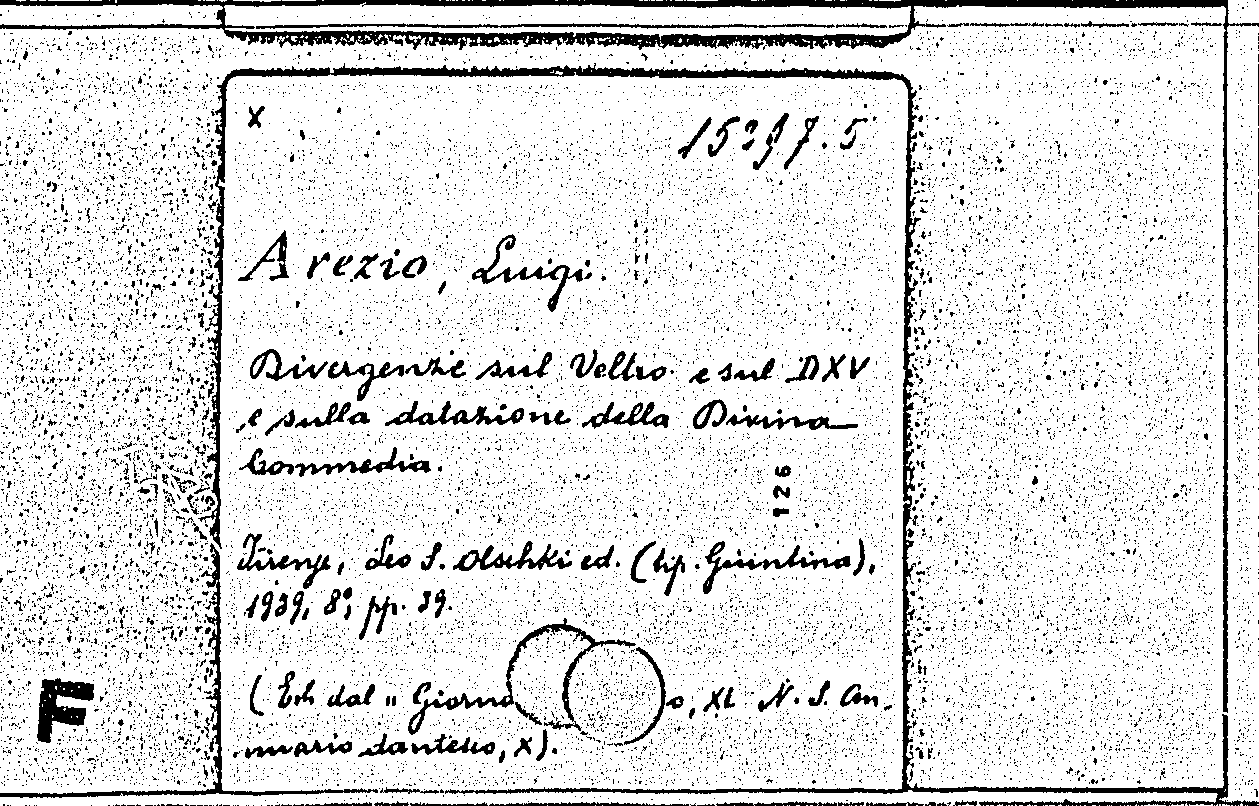 x
15297.5
Arezio, Luigi.
Divergenze sul Veltro e sul DXV
e sulla datazione della Divina
Commedia.
126
Firenze, Leo S. Olschki ed. (tip. Giuntina),
1939, 8°, pp. 39.
(Estr. dal " Giorna o, XL N. S. An-
nuario dantesco, X).
F